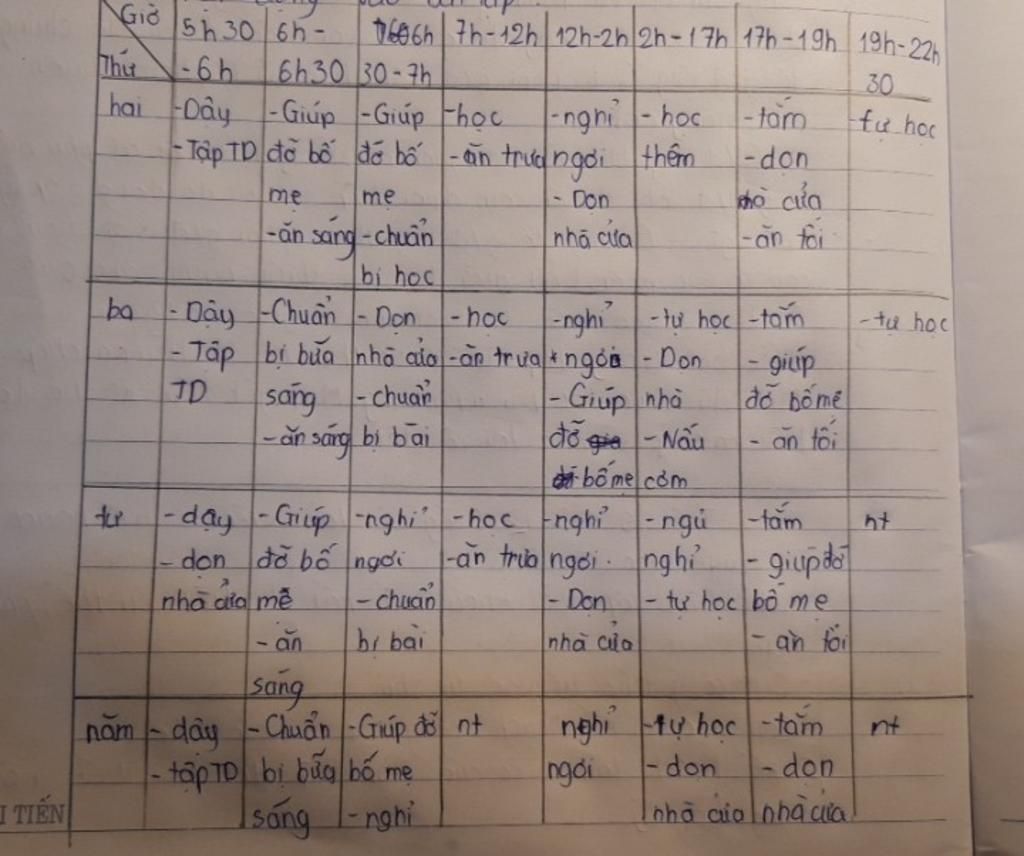 Giờ 5h30 6h- 6h 7h-12h 12h-2h 2h-17h 17h-19h 19h-22h
Thứ -6h 6h30 30-7h 30
hai -Dậy -Giúp -Giúp -học -nghỉ -học -tắm -tự học
-Tập TD đỡ bố đỡ bố -ăn trưa ngơi thêm -dọn
mẹ mẹ -Dọn nhà cửa
-ăn sáng -chuẩn nhà cửa -ăn tối
bị học
ba -Dậy -Chuẩn -Dọn -học -nghỉ -tự học -tắm -tự học
-Tập bị bữa nhà cửa -ăn trưa ngơi -Dọn -giúp
TD sáng -chuẩn -Giúp nhà đỡ bố mẹ
-ăn sáng bị bài đỡ -Nấu -ăn tối
bố mẹ cơm
tư -dậy -Giúp -nghỉ -học -nghỉ -ngủ -tắm nt
-dọn đỡ bố ngơi -ăn trưa ngơi. nghỉ -giúp đỡ
nhà cửa mẹ -chuẩn -Dọn -tự học bố mẹ
-ăn bị bài nhà cửa -ăn tối
sáng
năm -dậy -Chuẩn -Giúp đỡ nt nghỉ -tự học -tắm nt
-tập TD bị bữa bố mẹ ngơi -dọn -dọn
sáng -nghỉ nhà cửa nhà cửa
I TIẾN